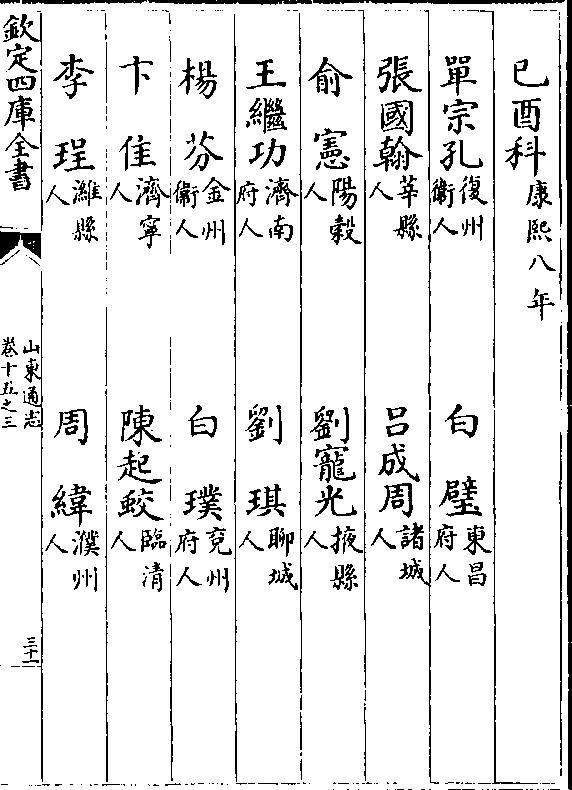 己酉科康熙八年
單宗孔復州衞人 白璧東昌府人
張國翰莘縣人 呂成周諸城人
俞憲陽穀人 劉寵光掖縣人
王繼功濟南府人 劉琪聊城人
楊芬金州衞人 白璞兖州府人
卞佳濟寧人 陳起蛟臨清人
李珵濰縣人 周緯濮州人
欽定四庫全書
山東通志
卷十五之三
三十一